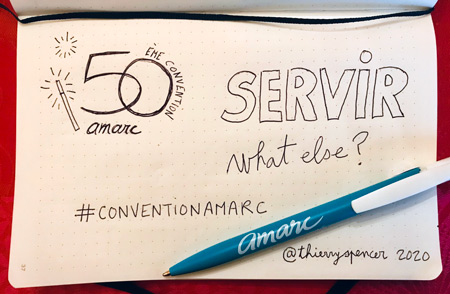 50
ÈME CONVENTION
amarc
SERVIR
what else?
#CONVENTIONAMARC
amarc
@thierryspencer 2020